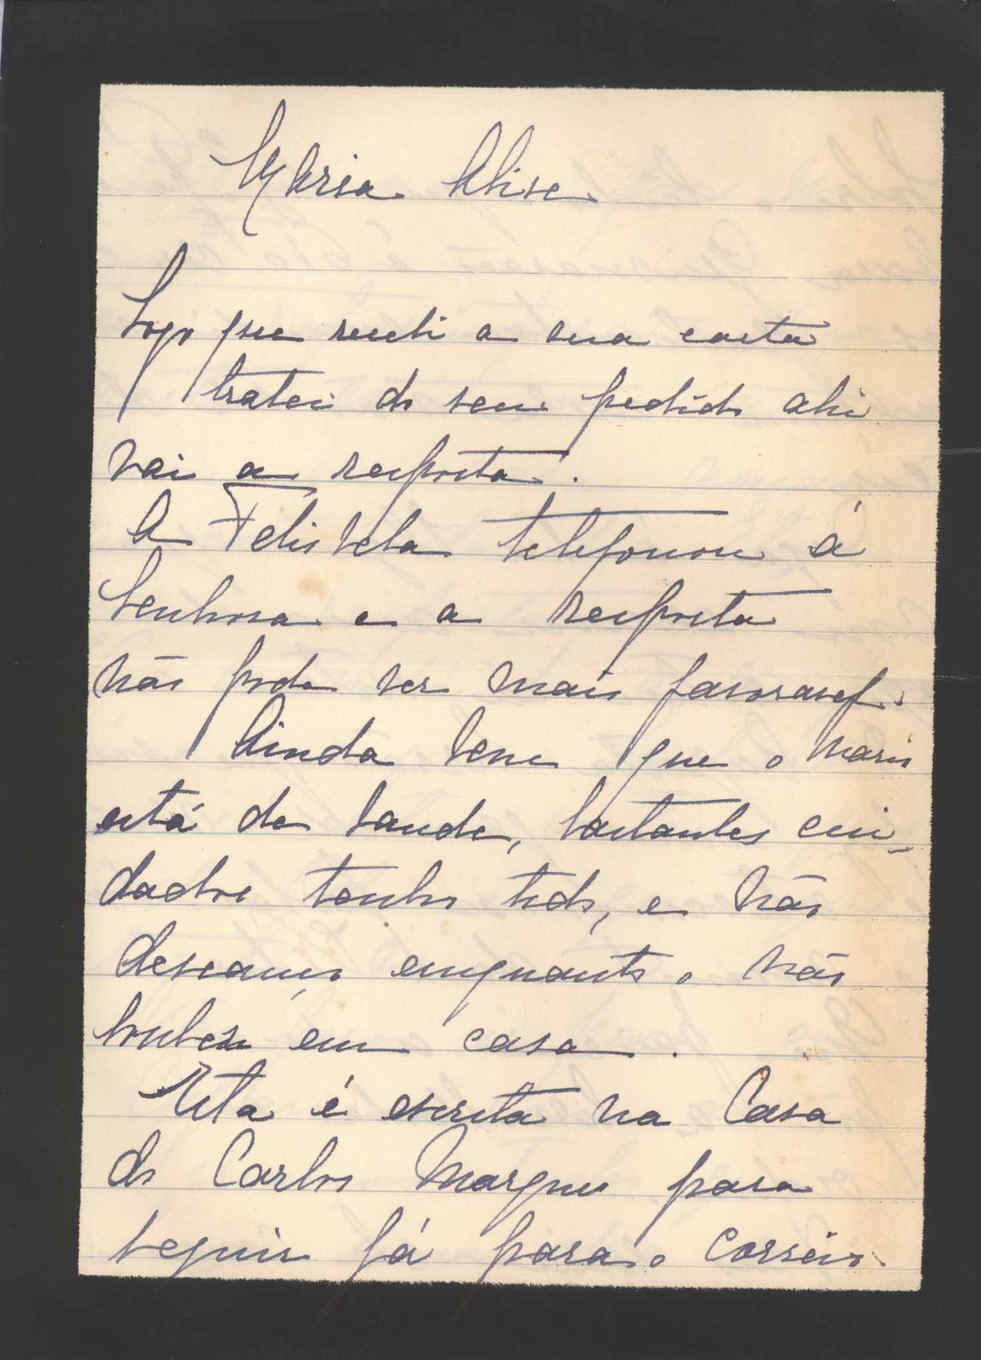 Maria Alise
Logo que recebi a sua carta
tratei do seu pedido ahi
vai a resposta.
A Felisbela telefonou á
senhora e a resposta
não pode ser mais favoravel.
Ainda bem que o Mario
está de saude, bastantes cui-
dados tenho tido, e não
descanço emquanto o não
souber em casa.
Esta é escrita na Casa
do Carlos Marques para
seguir já para o Correio.